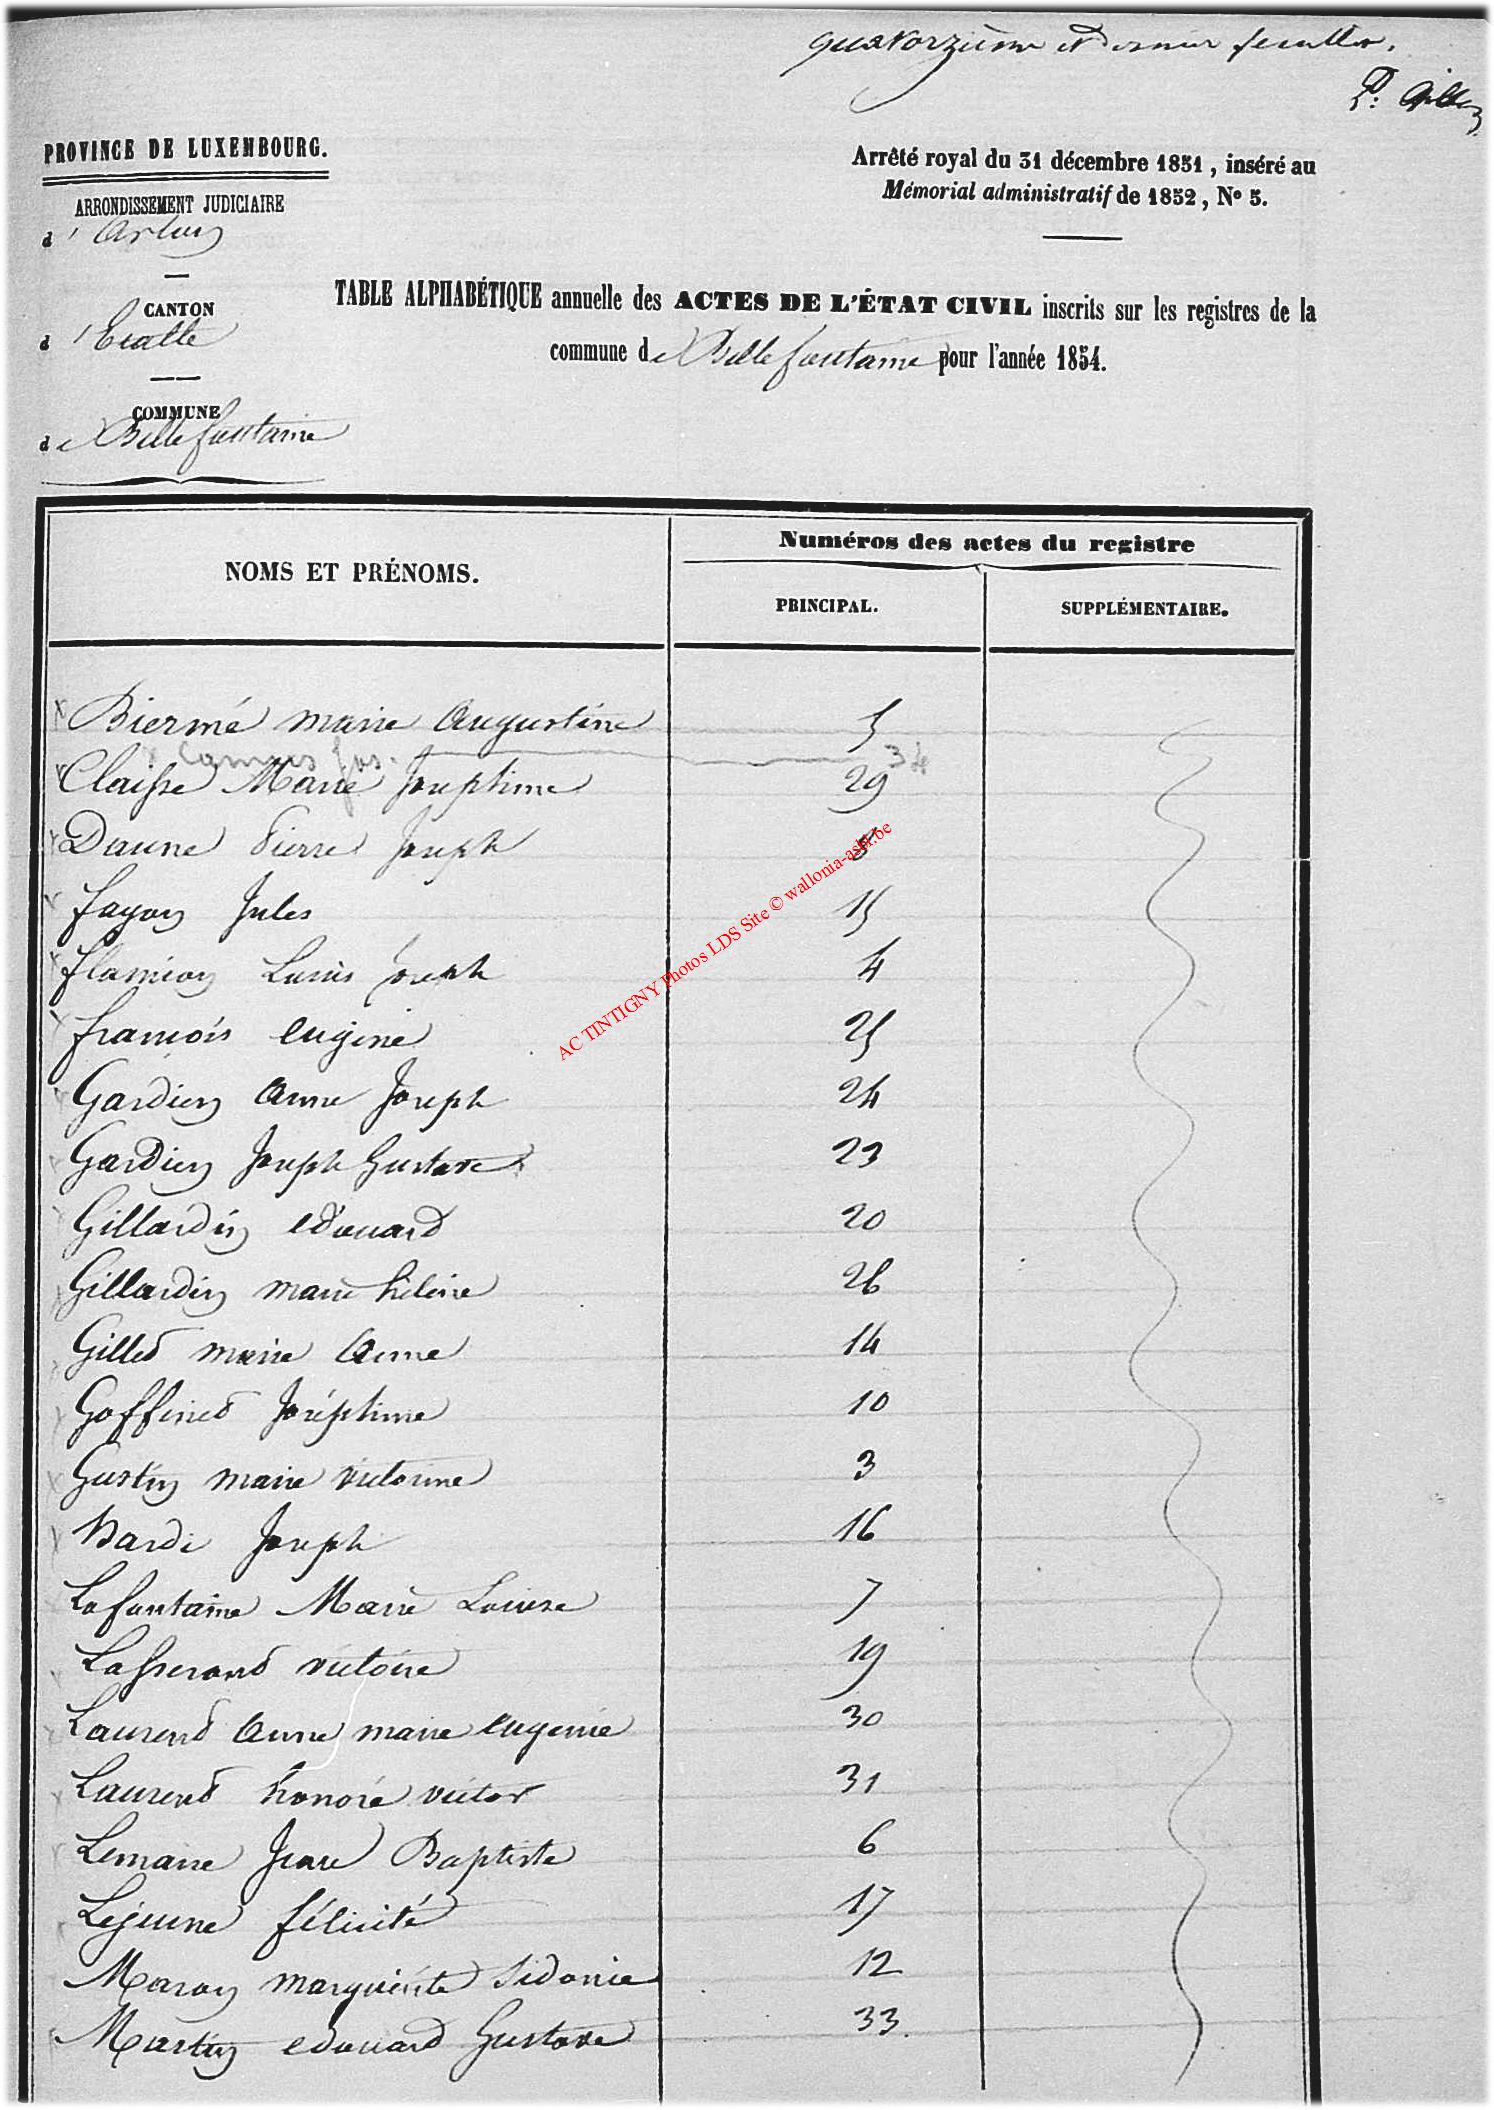 quatorzième et dernier feuillet.
PROVINCE DE LUXEMBOURG.
Arrêté royal du 31 décembre 1851, inséré au
Mémorial administratif de 1852, No 5.
ARRONDISSEMENT JUDICIAIRE
d'Arlon
CANTON
d'Etalle
COMMUNE
de Bellefontaine
TABLE ALPHABÉTIQUE annuelle des ACTES DE L'ÉTAT CIVIL inscrits sur les registres de la
commune de Bellefontaine pour l'année 1854.
NOMS ET PRÉNOMS.
Numéros des actes du registre
PRINCIPAL.
SUPPLÉMENTAIRE.
Biermé marie augustine 5
Camus Jos. 34
Claisse Marie Joséphine 29
Daune Pierre Joseph 8
fayon Jules 15
flamion Louis Joseph 4
françois eugène 25
Gardien anne Joseph 24
Gardien Joseph Gustave 23
Gillardin edouard 20
Gillardin marie hélène 26
Gilles marie anne 14
Goffinet Joséphine 10
Gustin marie victorine 3
Hardi Joseph 16
Lafontaine Marie Louise 7
Lasserand victoire 19
Laurend anne marie eugenie 30
Laurend honoré victor 31
Lemaire Jean Baptiste 6
Lejeune félicité 17
Maron marguerite Sidonie 12
Martin edouard Gustave 33.
AC TINTIGNY Photos LDS Site © wallonia-asbl.be